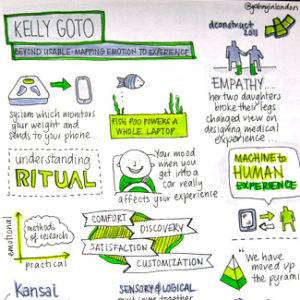 @yahnyinlondon
KELLY GOTO
BEYOND USABLE: MAPPING EMOTION TO EXPERIENCE
dconstruct
2011
system which monitors
your weight and
sends to your phone...
FISH POO POWERS A
WHOLE LAPTOP..
EMPATHY....
her two daughters
broke their legs
changed view on
designing medical
experience....
understanding
RITUAL
Your mood
when you
get into a
car really
affects your experience
MACHINE to
HUMAN
EXPERIENCE
emotional
methods
of research
practical
COMFORT
DISCOVERY
SATISFACTION
CUSTOMIZATION
We have
moved up
the pyramid
Kansai
SENSORY & LOGICAL
must come together